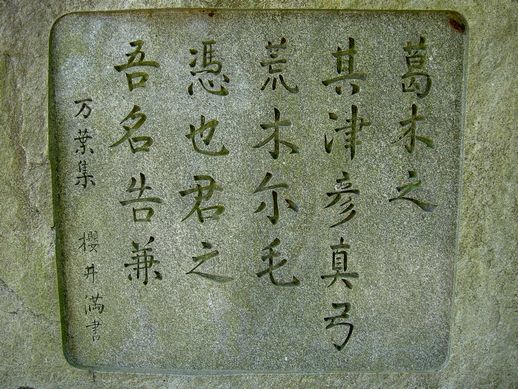 葛木之
其津彦真弓
荒木尓毛
憑也君之
吾名告兼
万葉集　櫻井満書